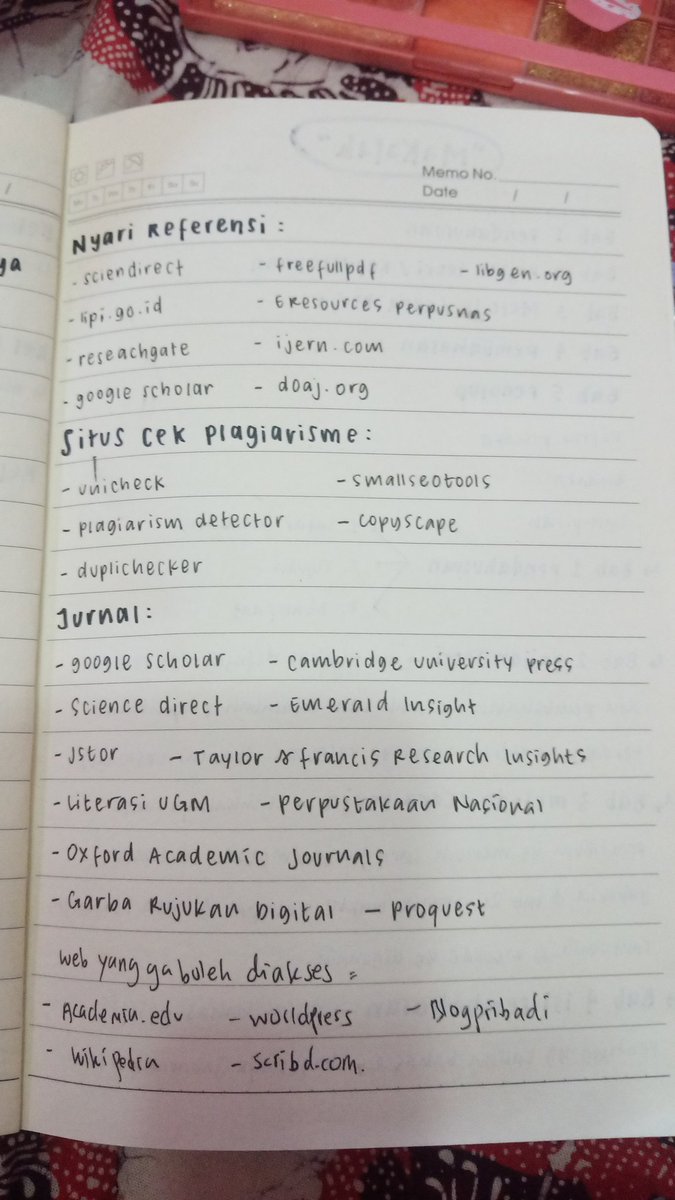 Memo No.
Date / /
Nyari Referensi :
- sciendirect - freefullpdf - libgen.org
- lipi.go.id - EResources Perpusnas
- reseachgate - ijern.com
- google scholar - doaj.org
Situs cek plagiarisme :
- unicheck - smallseotools
- plagiarism detector - copyscape
- duplichecker
Jurnal :
- google scholar - Cambridge University Press
- Science direct - Emerald Insight
- Jstor - Taylor & francis Research Insights
- Literasi UGM - Perpustakaan Nasional
- Oxford Academic Journals
- Garba Rujukan Digital - Proquest
web yang ga boleh diakses =
- Academia.edu - worldpress - Blogpribadi
- wikipedia - scribd.com.